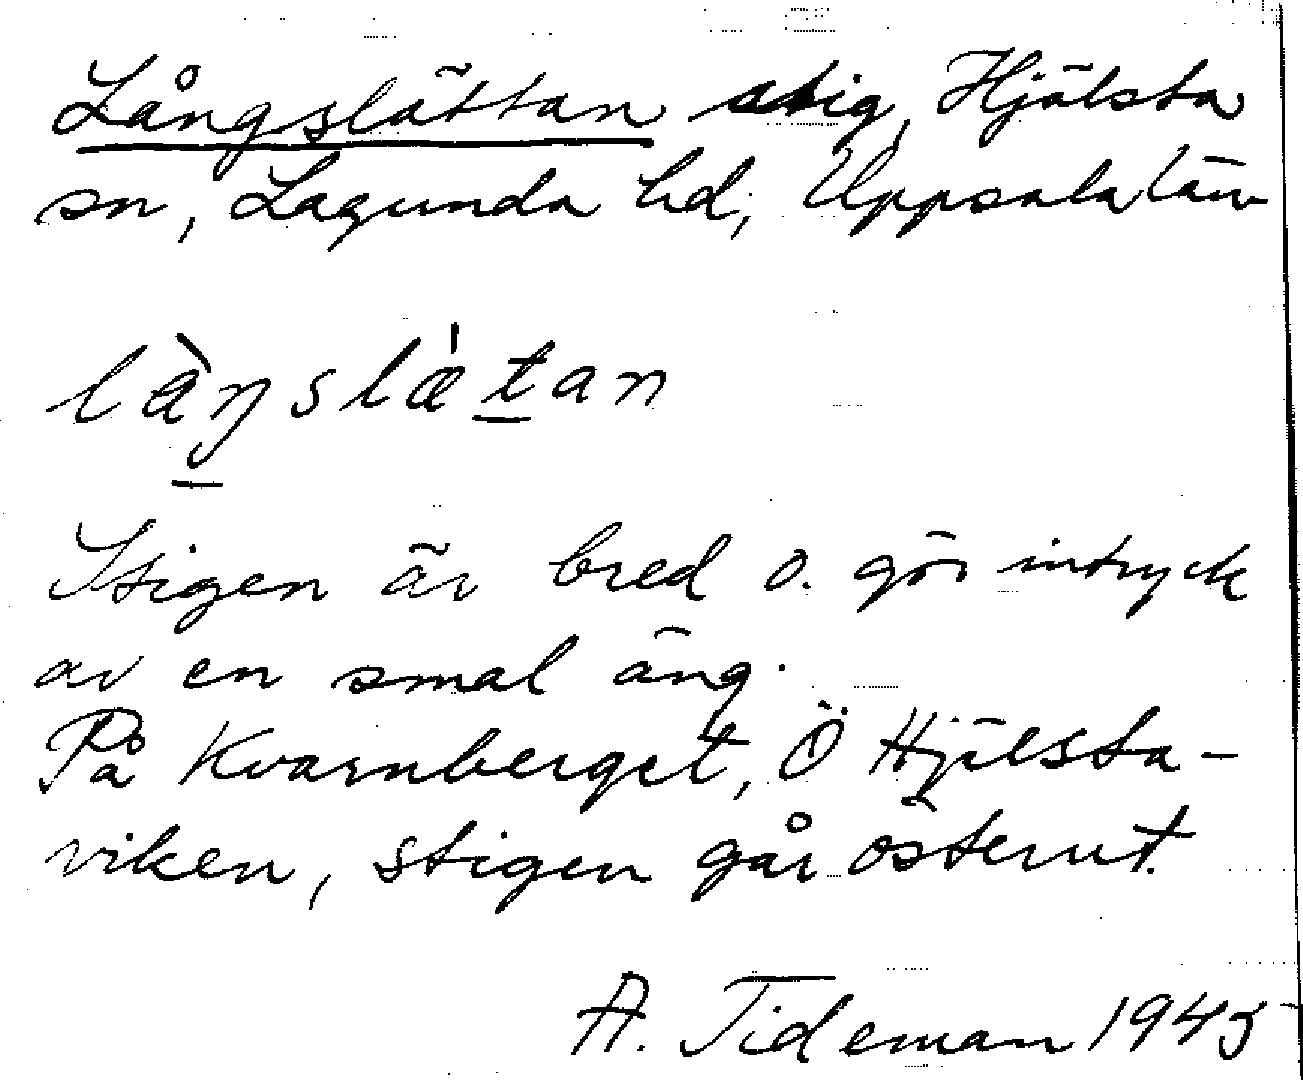 Långslättan stig, Hjälsta
sn, Lagunda hd, Uppsala län
låŋslætan
Stigen är bred o. gör intryck
av en smal äng.
På Kvarnberget, Ö Hjälsta-
viken, stigen går österut.
A. Tideman 1945